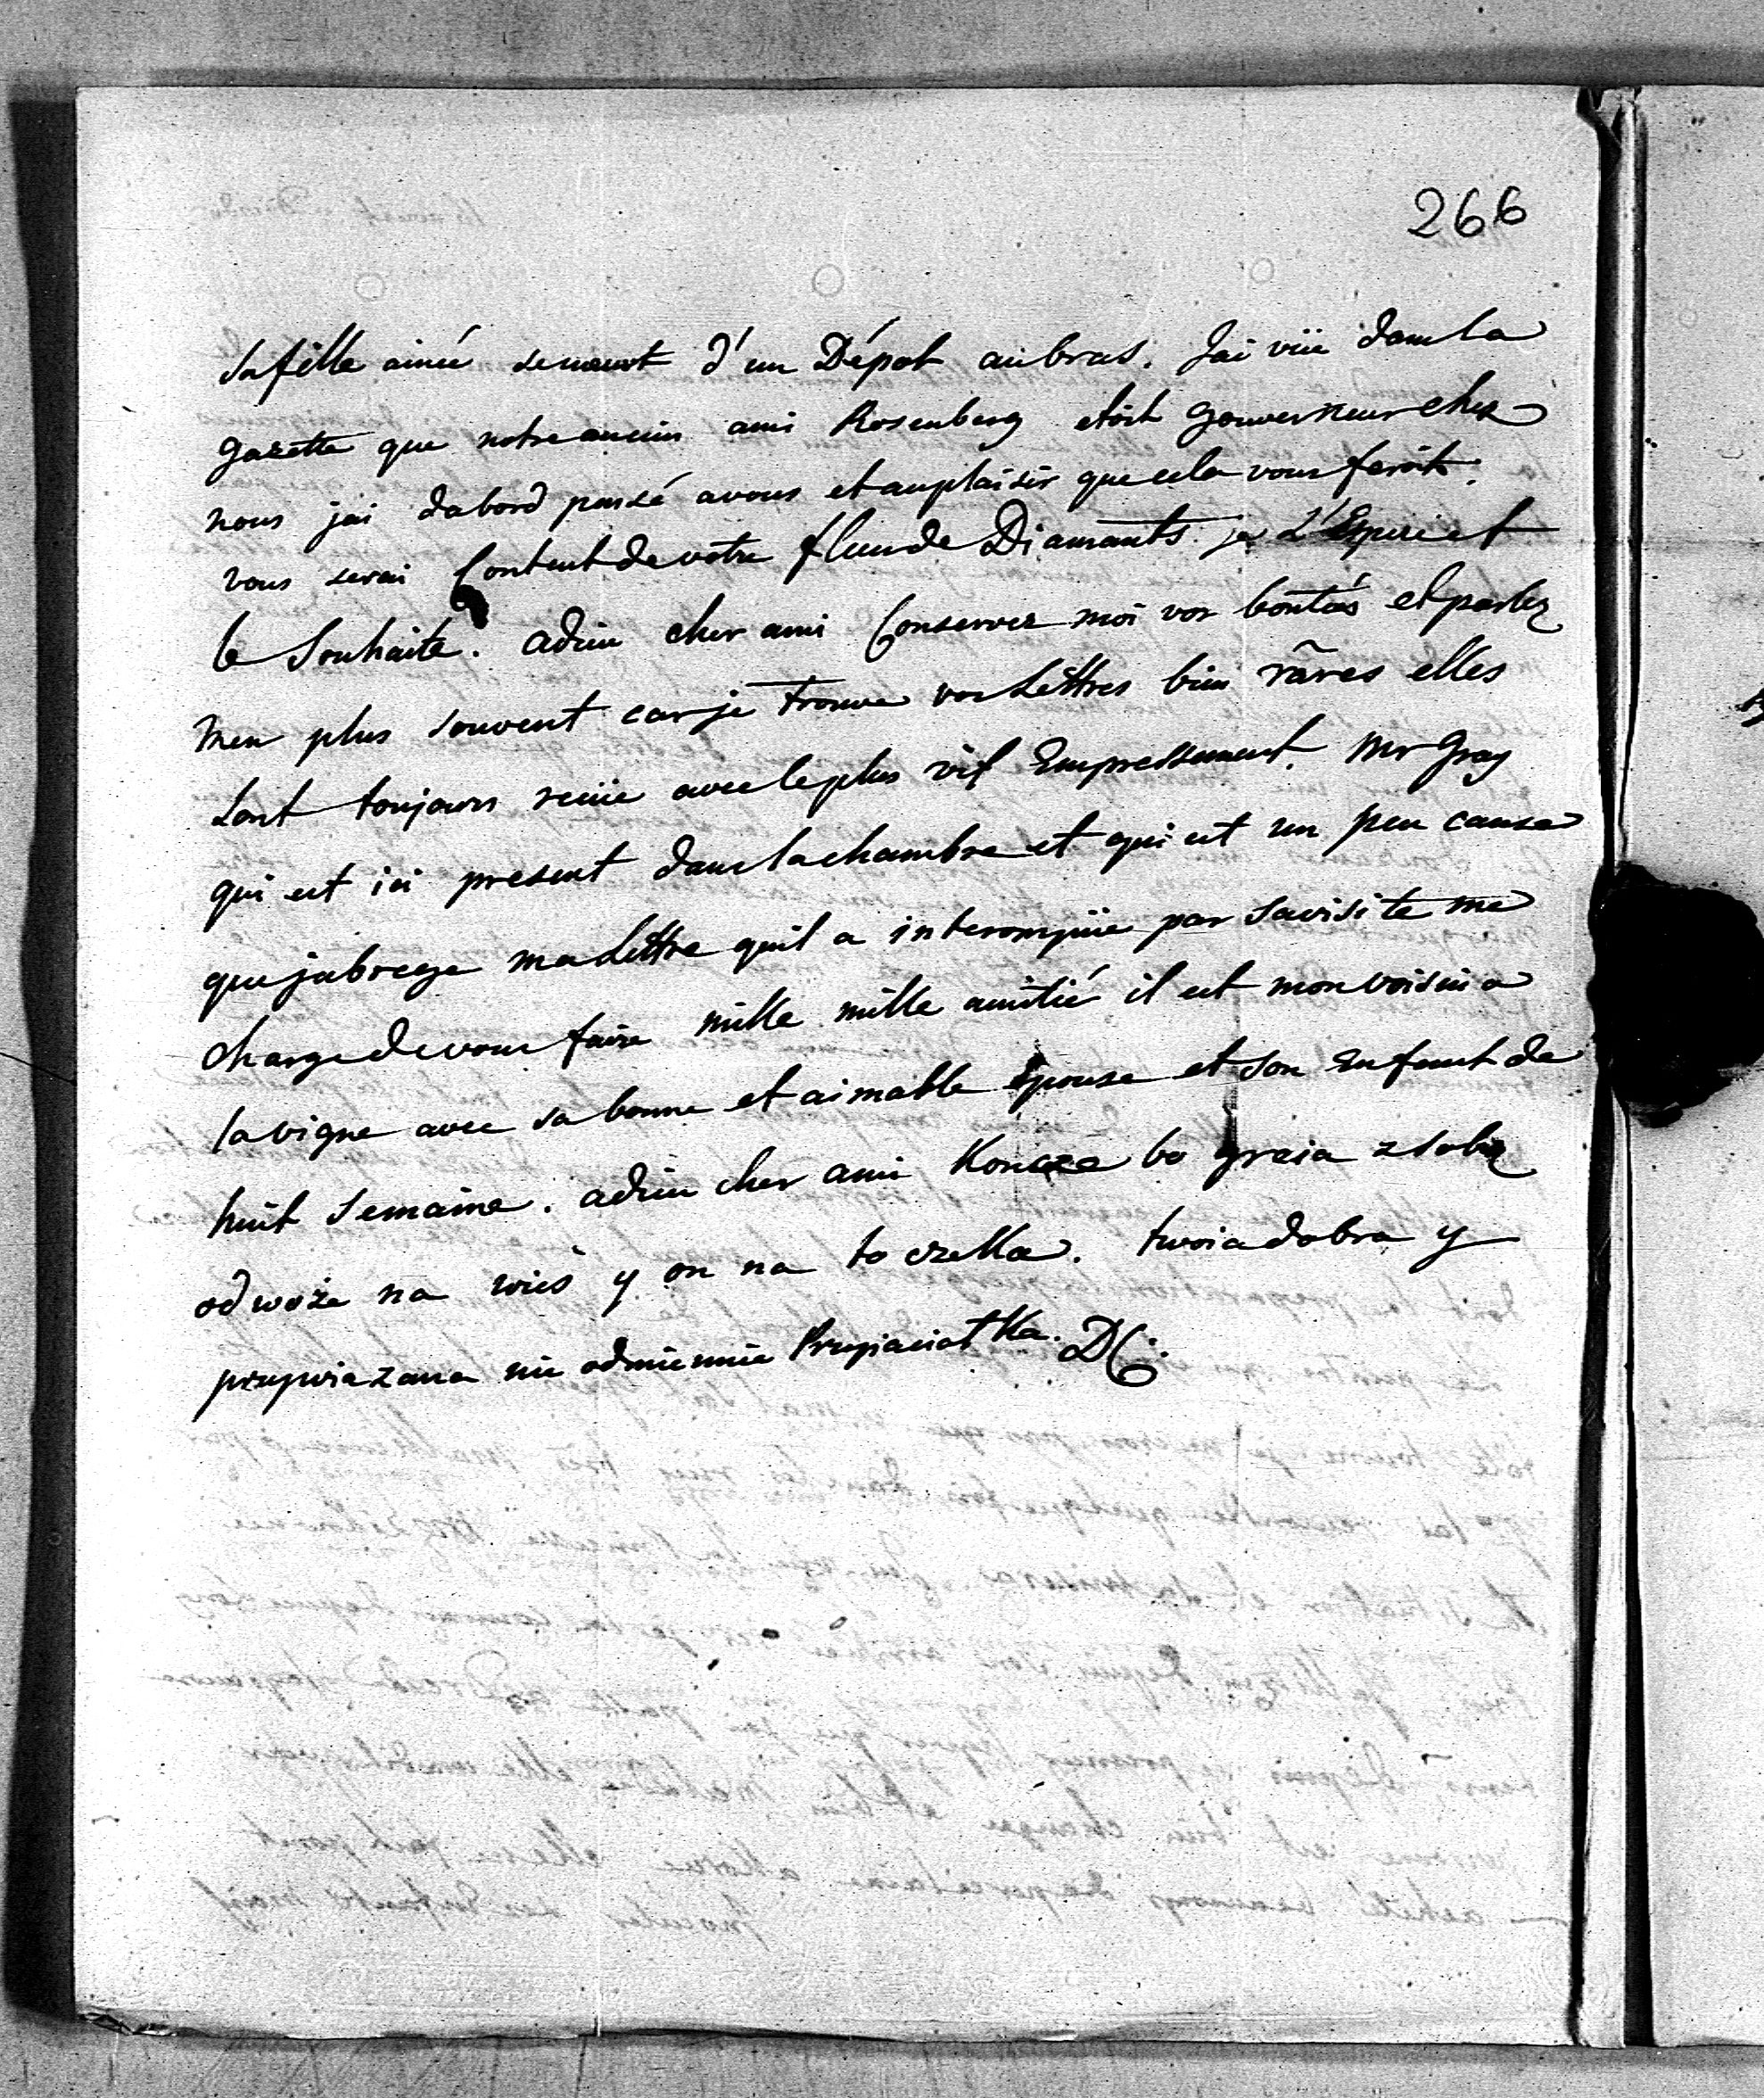 266
sa fille ainée se meurt d'un Dépot au bras. Jai vüe dans la
gazette que notre ancien ami Rosenberg etoit gouverneur chez
nous jai dabord pensé a vous et au plaisir que cela vous feroit.
vous serai Content de votre fleur de Diamants. je L'Esperie et
le Souhaite. adieu cher ami Conservez moi vos bontés et parlez
men plus souvent car je trouve vos Lettres bien rares elles
sont toujours recüe avec le plus vif Empressement. Mr Gray
qui est ici present dans la chambre et qui est un peu cause
que jabrege ma Lettre quil a interompüe par sa visite me
charge de vous faire mille mille amitié il est mon voisin a
la vigne avec sa bonne et aimable Epouse et son Enfant de
huit Semaine. adieu cher ami Koncze bo graia z sobą
odwoże na wieś y on na to czeka. twoia dobra y
przywiazana nie odmiennie Przyiaciołka. DC.